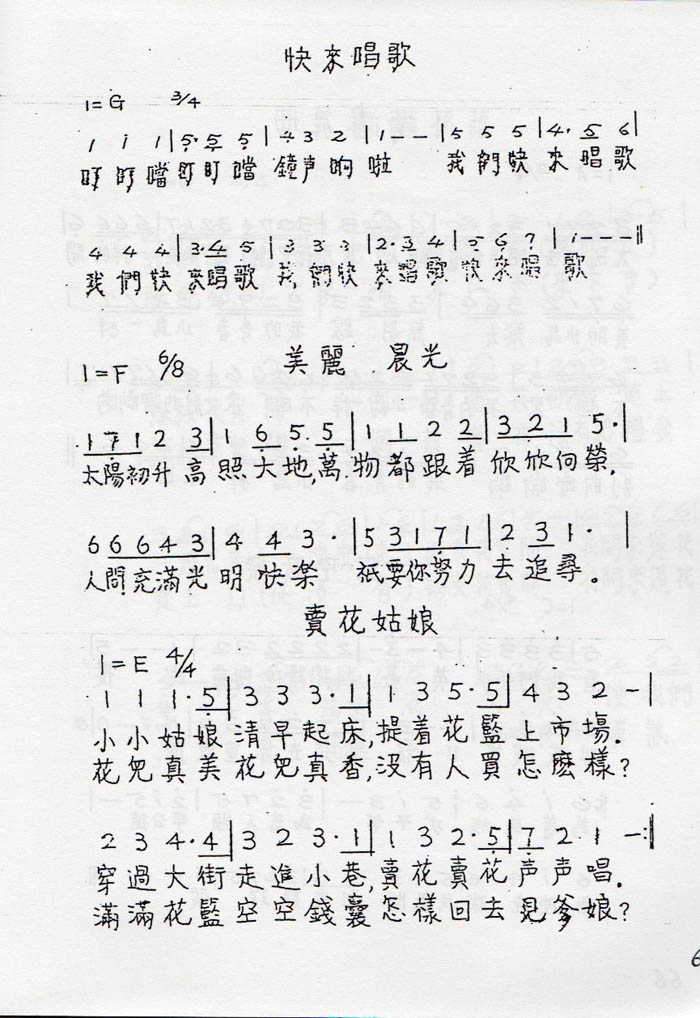 快來唱歌
1=G 3/4
1 i 1|5·5 5|4 3 2|1--|5 5 5|4·5 6|
叮叮噹叮叮噹 鐘声响啦 我們快來唱歌
4 4 4|3·4 5|3 3 3|2·3 4|5 6 7|i---‖
我們快來唱歌 我們快來唱歌 快來唱歌
1=F 6/8 美麗 晨光
1 7 1 2 3|1 6 5·5|1 1 2 2|3 2 1 5·|
太陽初升高照大地,萬物都跟着欣欣向榮,
6 6 6 4 3|4 4 3·|5 3 1 7 1|2 3 1·|
人間充滿光明快樂 祇要你努力去追尋。
賣花姑娘
1=E 4/4
1 1 1·5|3 3 3·1|1 3 5·5|4 3 2-|
小小姑娘清早起床,提着花籃上市場.
花兒真美花兒真香,沒有人買怎麽樣?
2 3 4·4|3 2 3·1|1 3 2·5|7 2 1-:‖
穿過大街走進小巷,賣花賣花声声唱.
滿滿花籃空空錢囊怎樣回去見爹娘?